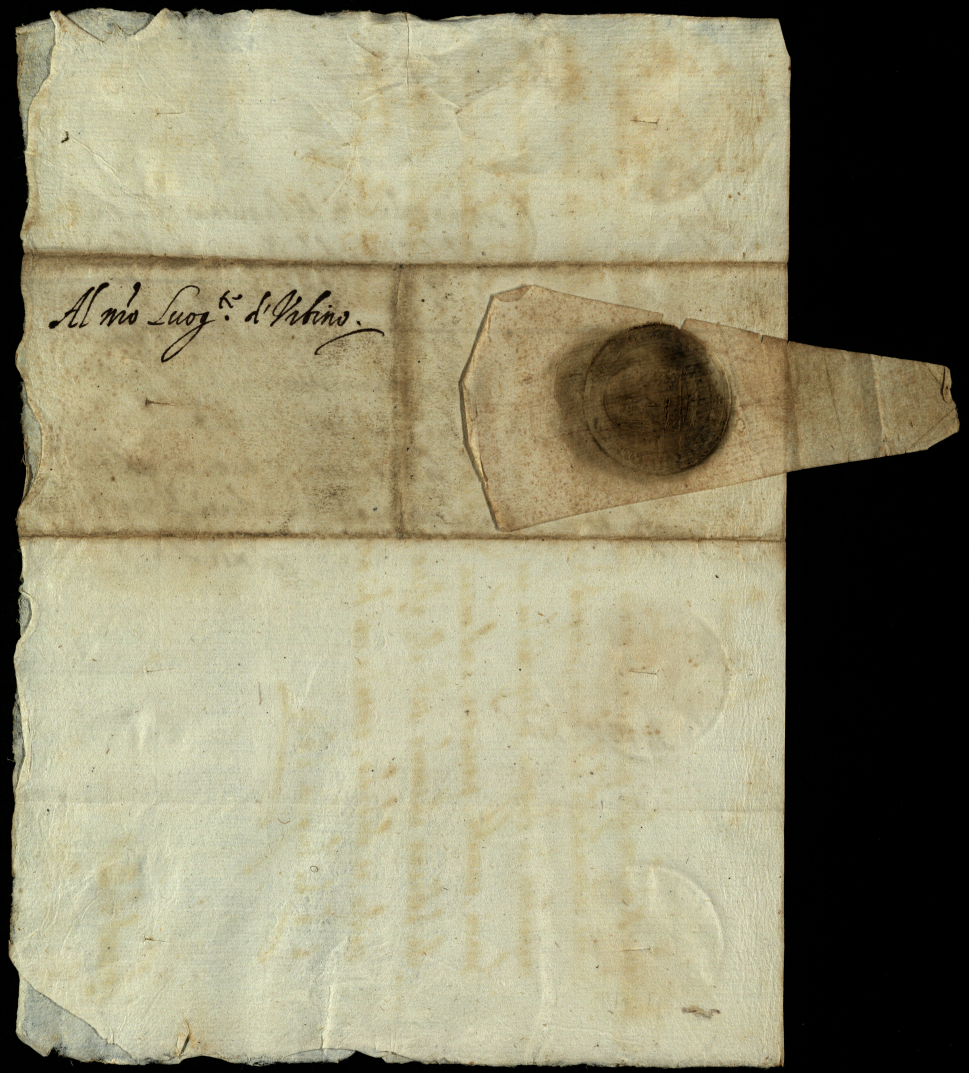 Al nro Luog.te d'Vrbino.